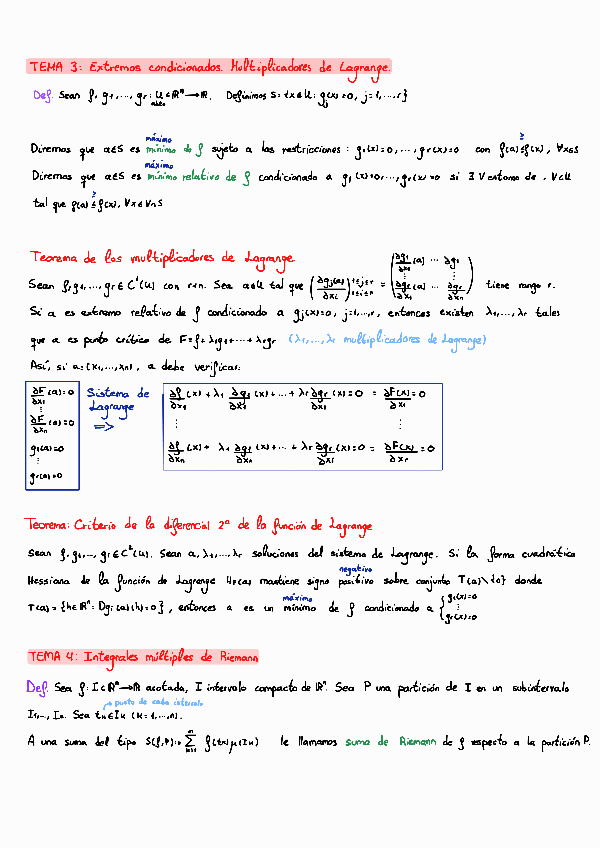 TEMA 3: Extremos condicionados. Multiplicadores de Lagrange.
Def. Sean f, g₁,..., gr: U⊂ℝⁿ→ℝ. Definimos S={x∈U: gj(x)=0, j=1,...,r}
abto
máximo ≥
Diremos que a∈S es mínimo de f sujeto a las restricciones: g₁(x)=0,..., gr(x)=0 con f(a)≤f(x), ∀x∈S
máximo
Diremos que a∈S es mínimo relativo de f condicionado a g₁(x)=0,..., gr(x)=0 si ∃ V entorno de , V⊂U
≥
tal que f(a)≤f(x), ∀x∈V∩S
Teorema de los multiplicadores de Lagrange
Sean f, g₁,..., gr∈C¹(U) con r<n. Sea a∈U tal que (∂gj(a)/∂xi) 1≤j≤r 1≤i≤n = (∂g₁/∂x₁(a) ... ∂g₁/∂xn ⋮ ⋮ ∂gr/∂x₁(a) ... ∂gr/∂xn) tiene rango r.
Si a es extremo relativo de f condicionado a gj(x)=0, j=1,...,r, entonces existen λ₁,...,λr tales
que a es punto crítico de F=f+λ₁g₁+...+λrgr (λ₁,...,λr multiplicadores de Lagrange)
Así, si a=(x₁,...,xn), a debe verificar:
∂F/∂x₁(a)=0
⋮
∂F/∂xn(a)=0
g₁(a)=0
⋮
gr(a)=0
Sistema de
Lagrange
=>
∂f/∂x₁(x)+λ₁ ∂g₁/∂x₁(x)+...+λr ∂gr/∂x₁(x)=0 = ∂F(x)/∂x₁=0
⋮ ⋮
∂f/∂xn(x)+λ₁ ∂g₁/∂xn(x)+...+λr ∂gr/∂xi(x)=0 = ∂F(x)/∂xr=0
Teorema: Criterio de la diferencial 2ª de la función de Lagrange
Sean f, g₁,..., gr∈C²(U). Sean a, λ₁,..., λr soluciones del sistema de Lagrange. Si la forma cuadrática
negativo
Hessiana de la función de Lagrange HF(a) mantiene signo positivo sobre conjunto T(a)\{0} donde
máximo
T(a)={h∈ℝⁿ: Dgi(a)(h)=0}, entonces a es un mínimo de f condicionado a {g₁(x)=0 ⋮ gr(x)=0
TEMA 4: Integrales múltiples de Riemann
Def. Sea f: I⊂ℝⁿ→ℝ acotada, I intervalo compacto de ℝⁿ. Sea P una partición de I en un subintervalo
punto de cada intervalo
I₁,..., Im. Sea tk∈Ik (k=1,...,m).
A una suma del tipo S(f,P):=∑ᵐₖ₌₁ f(tk)μ(Ik) le llamamos suma de Riemann de f respecto a la partición P.